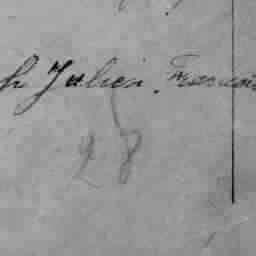 h Julien. Francois
28